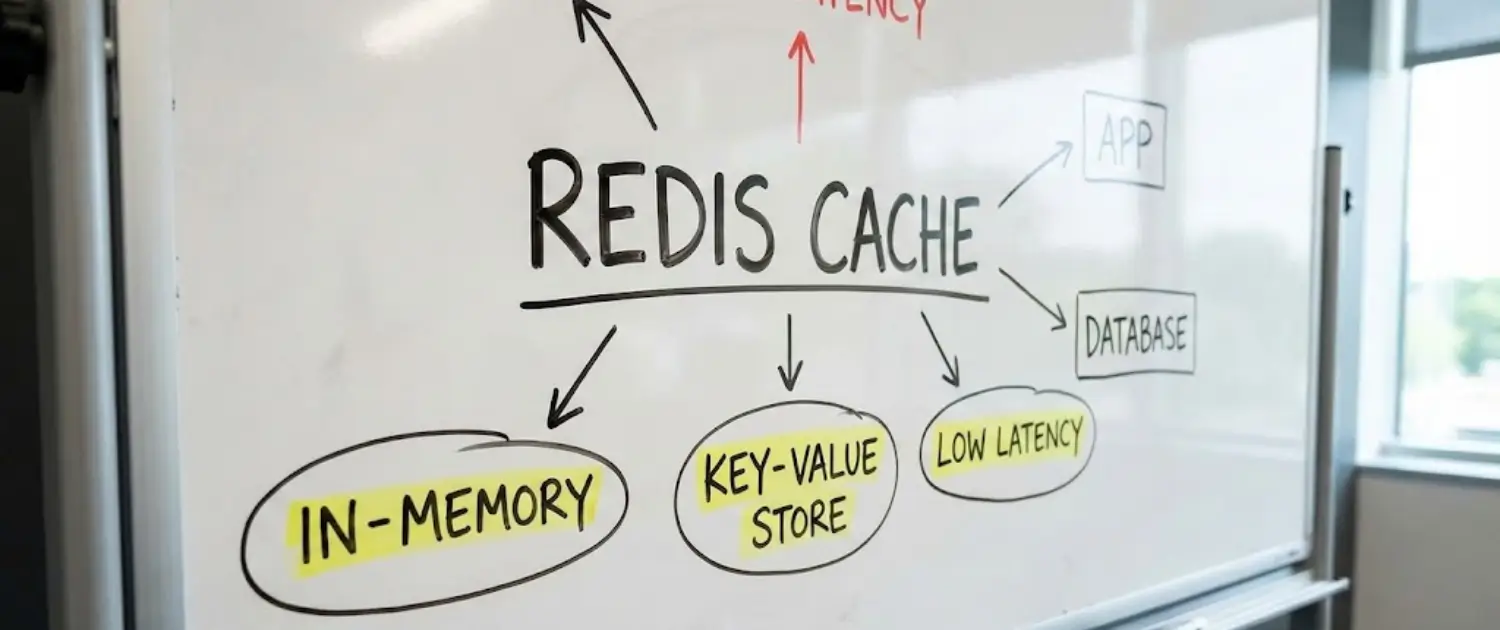 REDIS CACHE
APP
DATABASE
IN-MEMORY
KEY-VALUE
STORE
LOW LATENCY